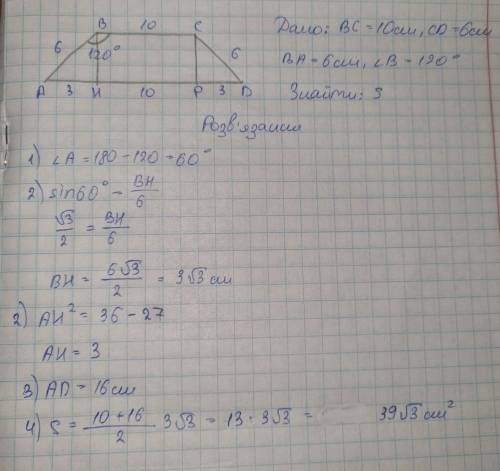 B 10 C
6 120° 6
A 3 H 10 P 3 D
Дано: BC = 10см, CD = 6см
BA = 6см, ∠B = 120°
Знайти: S
Розв'язання
1) ∠A = 180 - 120 = 60°
2) sin60° - BH/6
√3/2 = BH/6
BH = 6√3/2 = 3√3 см
2) AH² = 36 - 27
AH = 3
3) AD = 16 см
4) S = (10 + 16)/2 3√3 = 13 · 3√3 = 39√3 см²